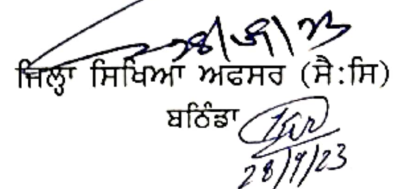 28/9/23
ਜਿਲ੍ਹਾ ਸਿਖਿਆ ਅਫਸਰ (ਸੈ:ਸਿ)
ਬਠਿੰਡਾ
28/9/23